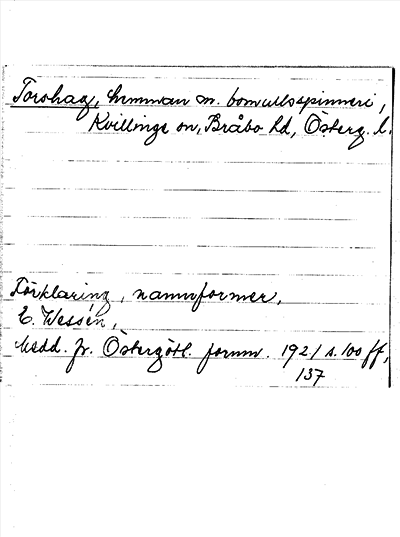 Torshag, hemman m. bomullsspinneri,
Kvillinge sn, Bråbo hd, Österg. l.
Förklaring, namnformer,
E. Wessén,
Medd. fr. Östergötl. fornm. 1921 s. 100 ff,
137